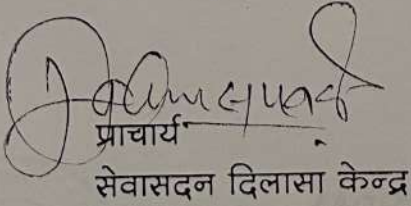 प्राचार्य
सेवासदन दिलासा केन्द्र